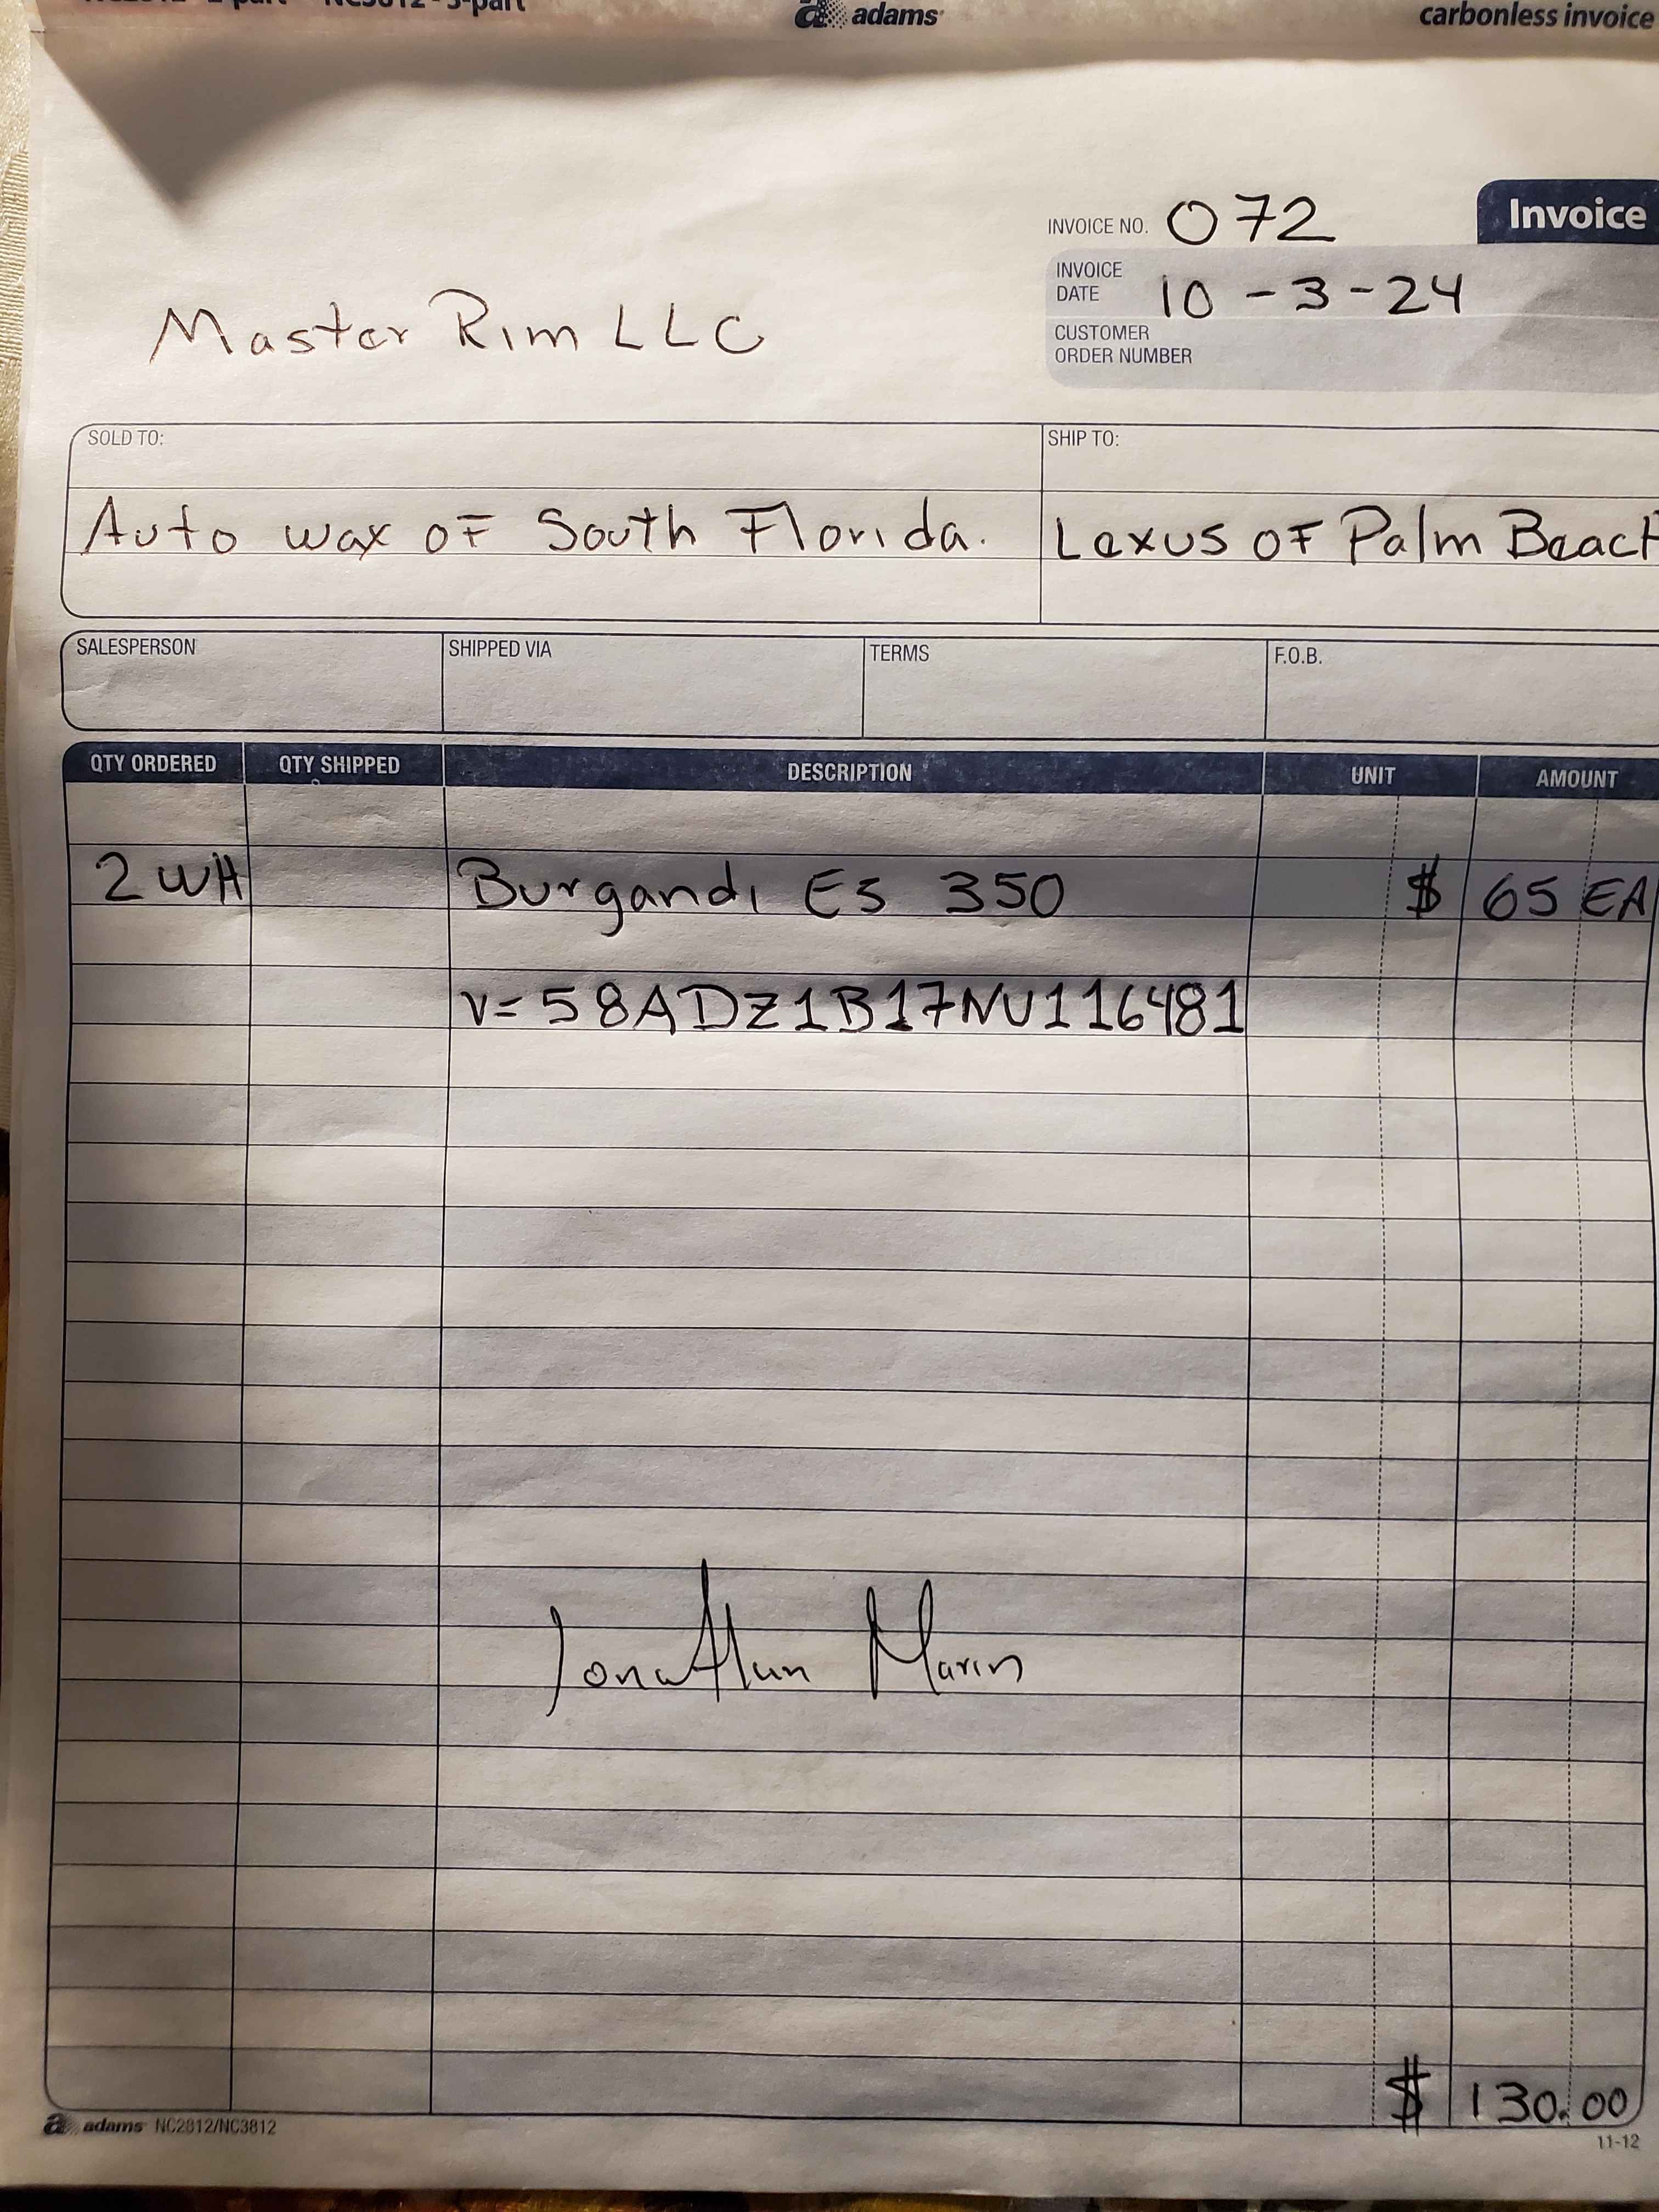 adams
carbonless invoice
INVOICE NO. 072
Invoice
INVOICE DATE 10-3-24
CUSTOMER ORDER NUMBER
Master Rim LLC
SOLD TO:
SHIP TO:
Auto wax of South Florida.
Lexus of Palm Beach
SALESPERSON
SHIPPED VIA
TERMS
F.O.B.
QTY ORDERED
QTY SHIPPED
DESCRIPTION
UNIT
AMOUNT
2 WH
Burgandi ES 350
$ 65 EA
V=58ADZ1B17NU116481
Jonathan Marin
$ 130.00
adams NC2812/NC3812
11-12